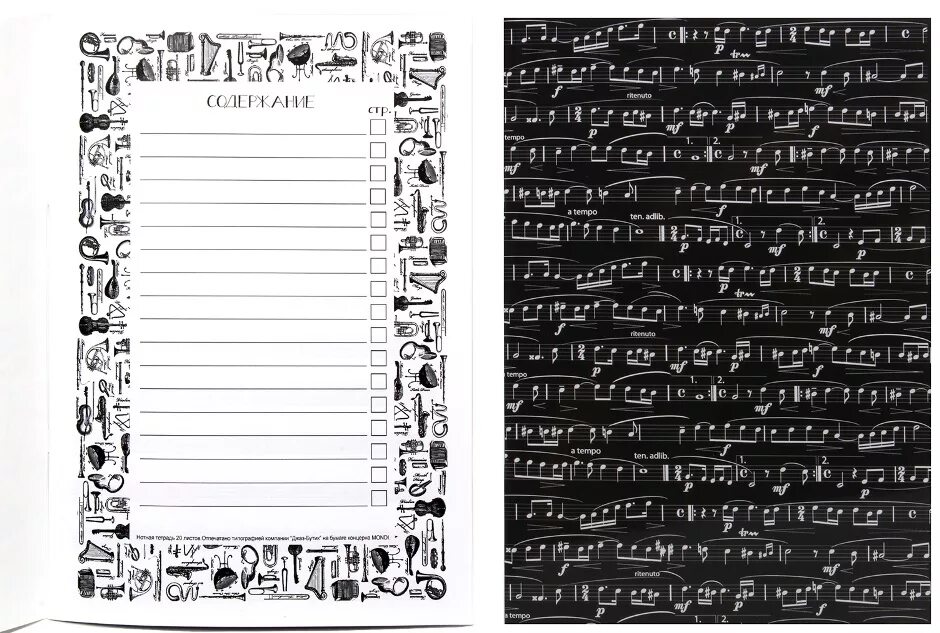 СОДЕРЖАНИЕ
стр.
Нотная тетрадь 20 листов. Отпечатано типографией компании "Джаз-Бутик" на бумаге концерна MONDI.
p
tr
f
ritenuto
mf
p
mf
p
f
tempo
1. 2.
mf
mf
f
a tempo
ten. adlib.
1. 2.
p
mf
p
p
tr
f
mf
ritenuto
p
mf
p
f
tempo
1. 2.
mf
mf
f
a tempo
ten. adlib.
1. 2.
p
mf
p
p
tr
f
mf
ritenuto
p
mf
p
f
a tempo
1. 2.